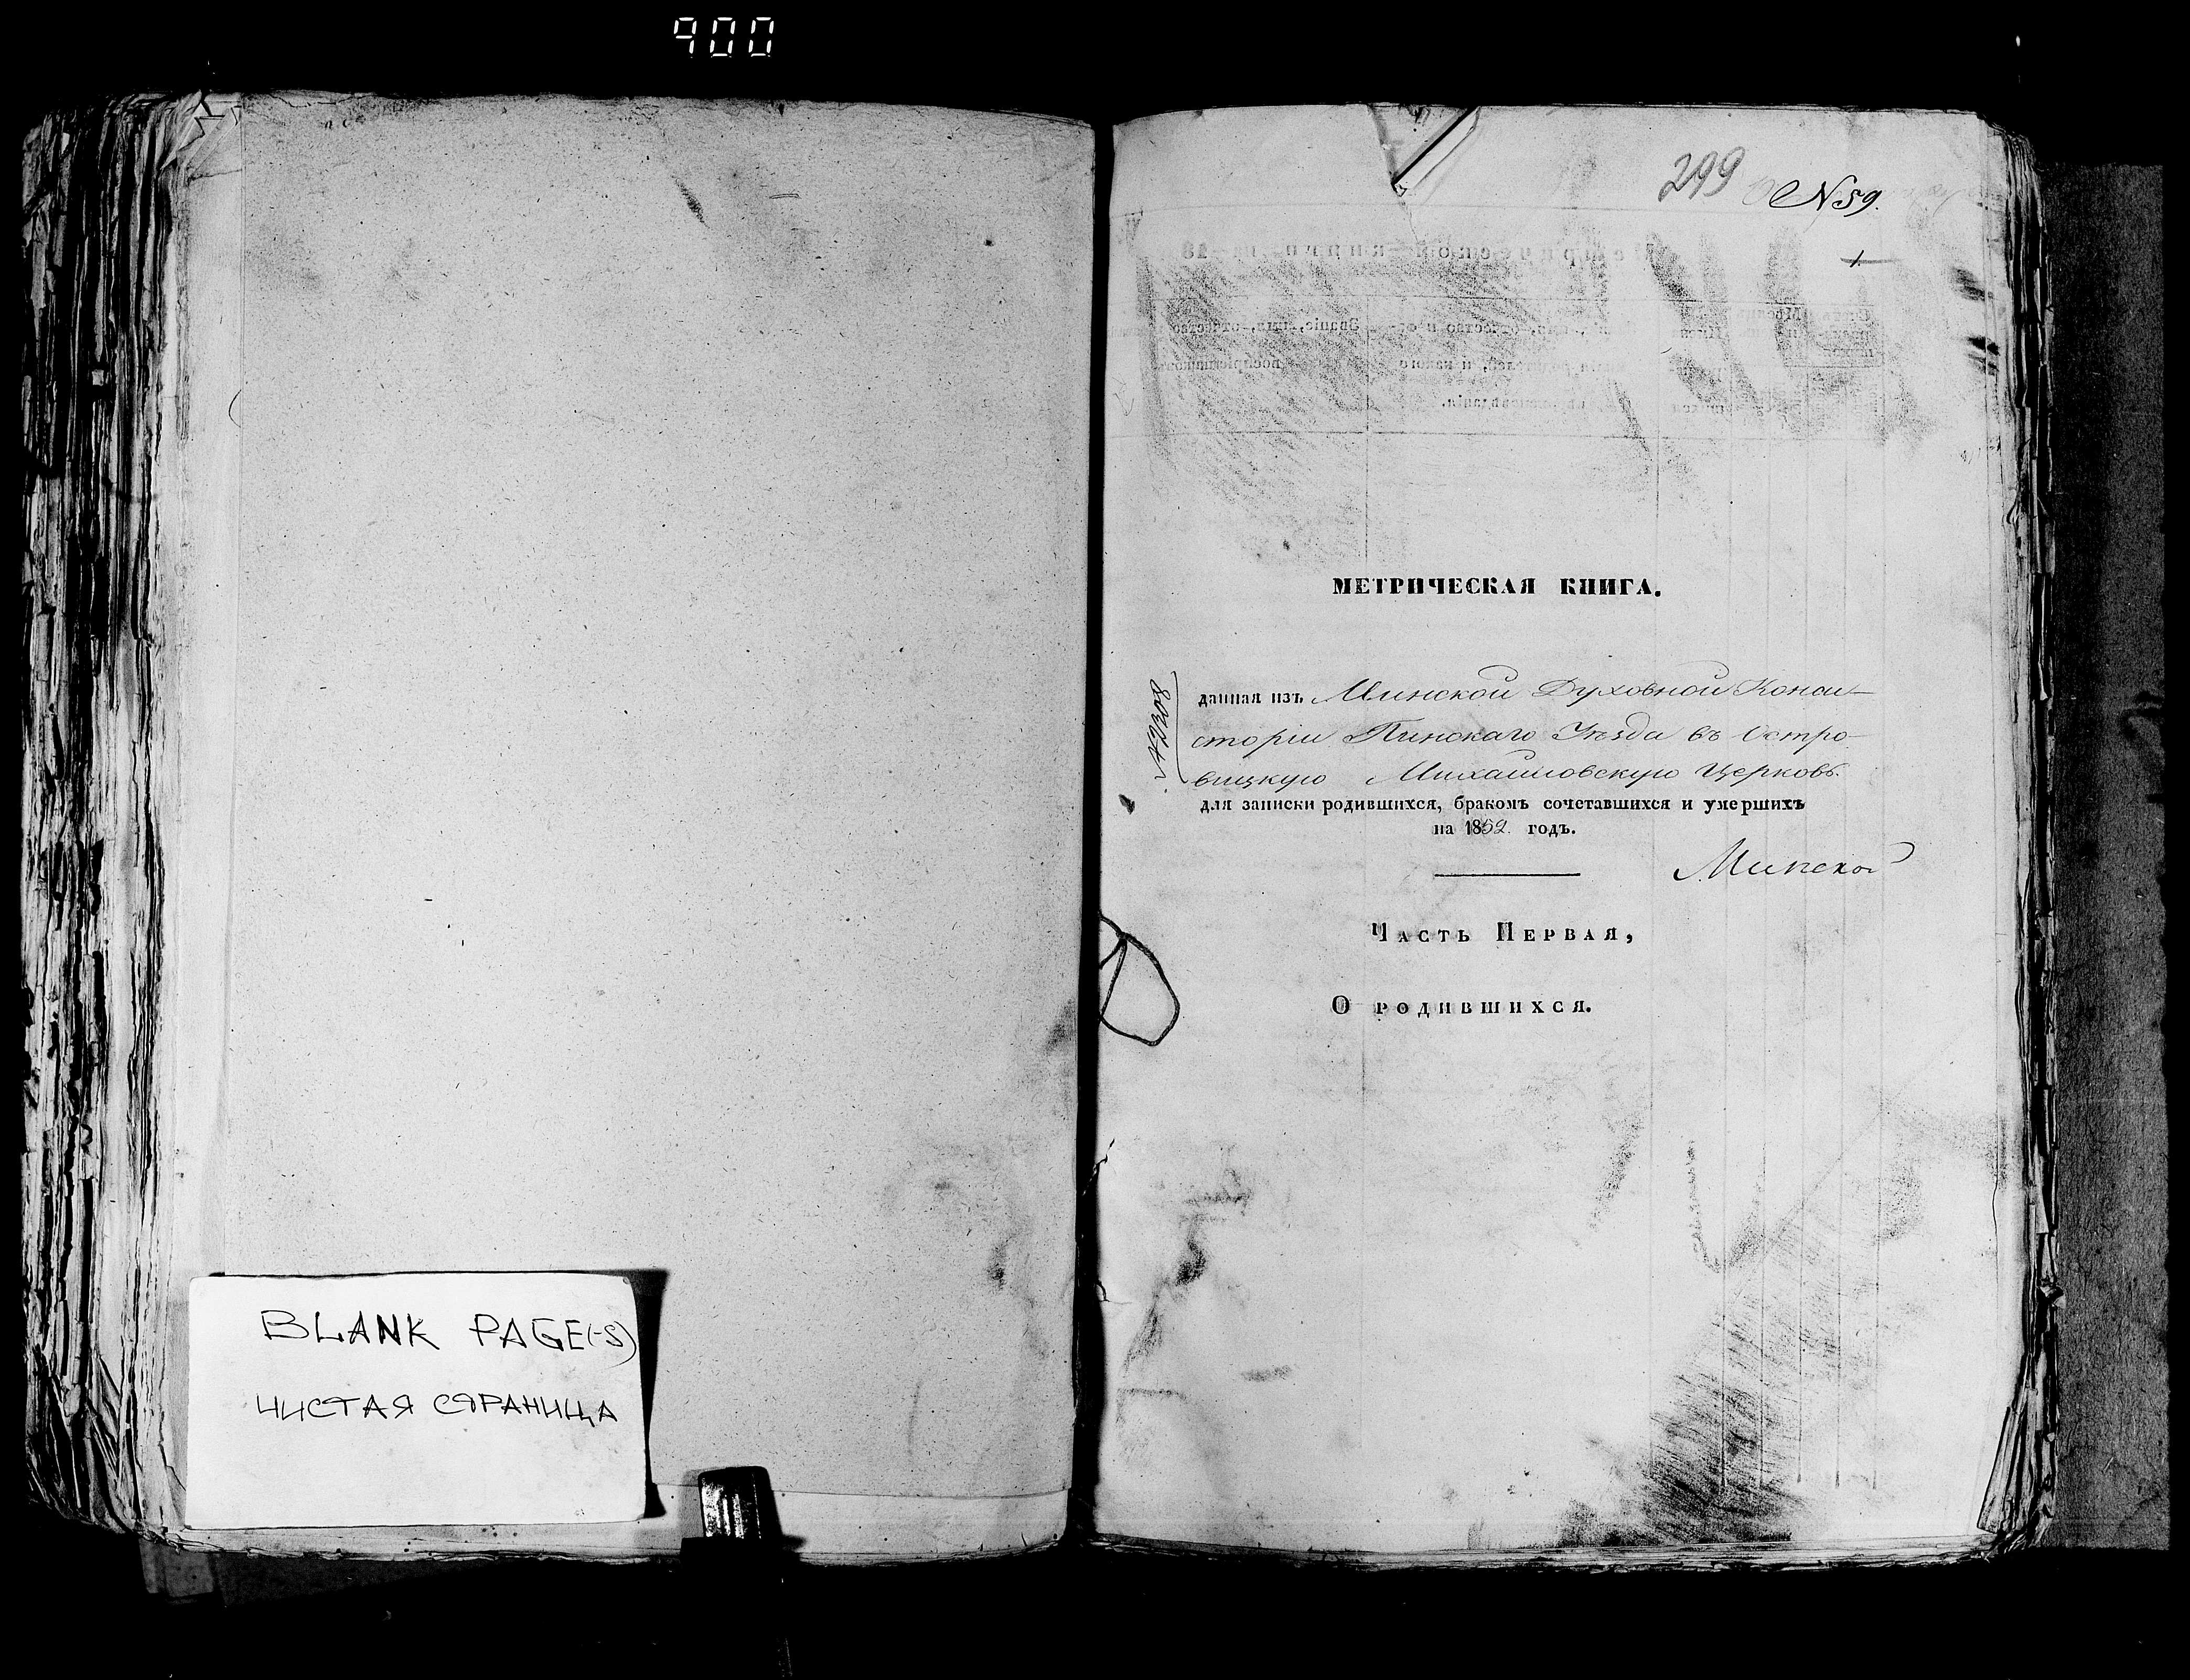 900
BLANK PAGE(-S)
ЧИСТАЯ СТРАНИЦА
299
N 59.
1.
МЕТРИЧЕСКАЯ КНИГА.
данная изъ Минской Духовной Конси-
сторіи Пинскаго Уѣзда въ Остро-
вицкую Михайловскую Церковь
для записки родившихся, бракомъ сочетавшихся и умершихъ
на 1852. годъ.
Минской
Часть Первая,
О родившихся.